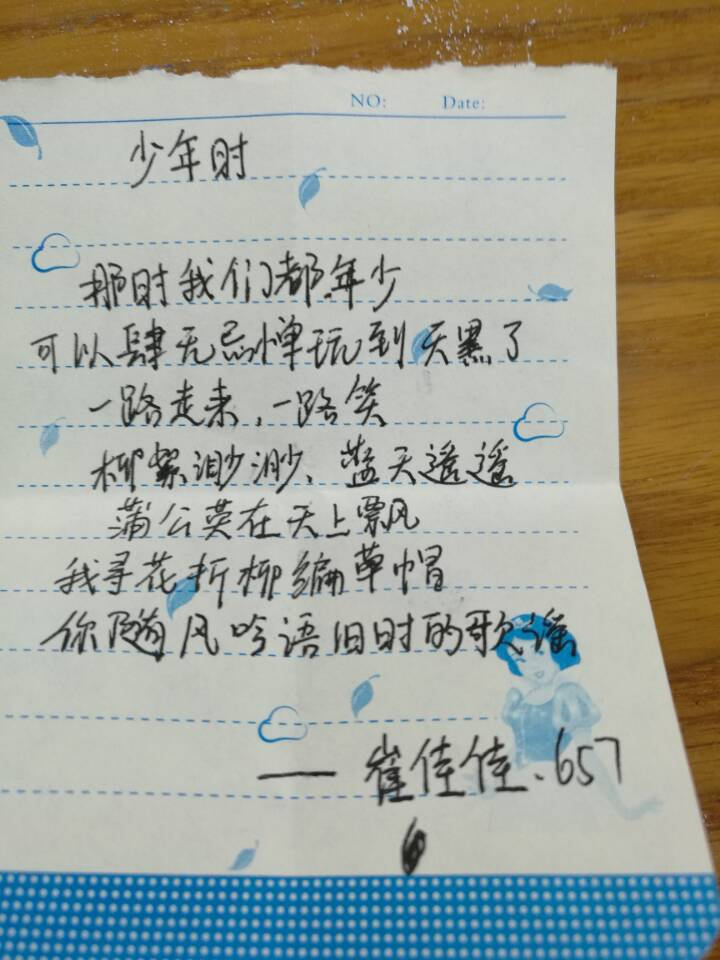 NO: Date:
少年时
那时我们都年少
可以肆无忌惮玩到天黑了
一路走来,一路笑
柳絮渺渺、蓝天遥遥
蒲公英在天上飘
我寻花折柳编草帽
你随风吟语旧时的歌谣
——崔佳佳、657